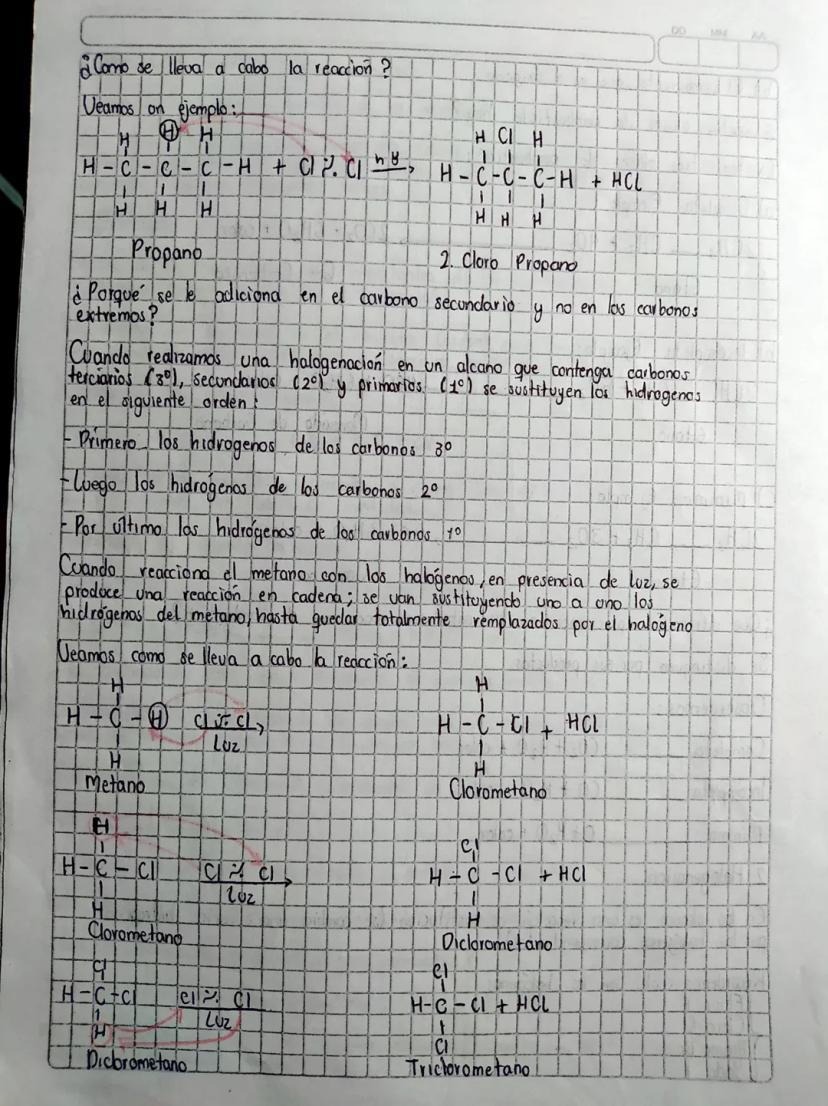 DD MM AA
¿Como se lleva a cabo la reacción?
Veamos un ejemplo:
H H H
H - C - C - C - H + Cl ٪ Cl →
H H H
H Cl H
H - C - C - C - H + HCL
H H H
Propano
2. Cloro Propano
¿Porqué se le adiciona en el carbono secundario y no en los carbonos
extremos?
Cuando realizamos una halogenación en un alcano que contenga carbonos
terciarios (3º), secundarios (2º) y primarios (1º) se sustituyen los hidrogenos
en el siguiente orden:
- Primero los hidrogenos de los carbonos 3º
- Luego los hidrógenos de los carbonos 2º
- Por último los hidrógenos de los carbonos 1º
Cuando reacciona el metano con los halógenos, en presencia de luz, se
produce una reacción en cadena; se van sustituyendo uno a uno los
hidrógenos del metano, hasta quedar totalmente remplazados por el halógeno
Veamos como se lleva a cabo la reacción:
H
H - C - H Cl ٪ Cl →
Luz
H
Metano
H
H - C - Cl + HCl
H
Clorometano
H
H - C - Cl Cl ٪ Cl →
Luz
H
Clorometano
Cl
H - C - Cl + HCl
H
Diclorometano
Cl
H - C - Cl Cl ٪ Cl
Luz
H
Diclorometano
Cl
H - C - Cl + HCL
Cl
Triclorometano